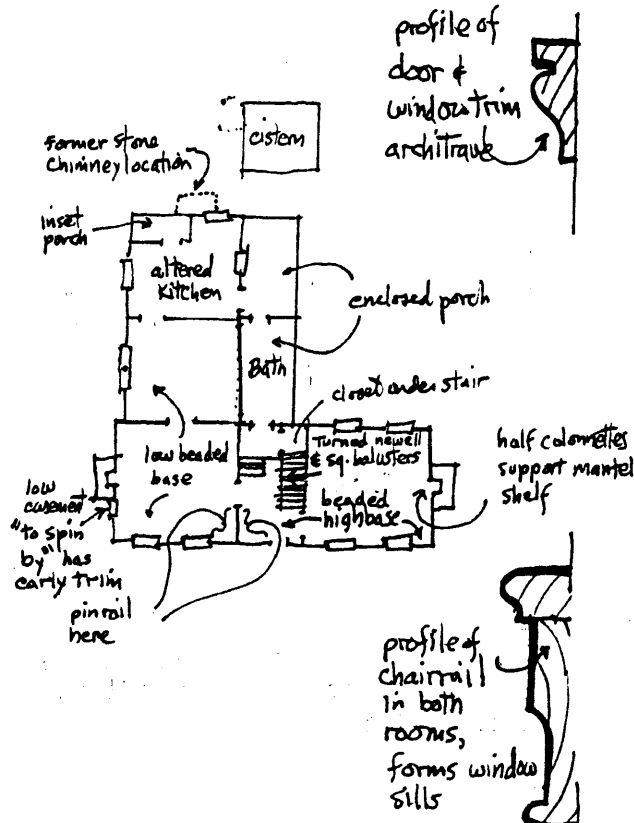 profile of
door &
window trim
architrave
cistern
Former stone
chimney location
inset
porch
altered
kitchen
enclosed porch
Bath
closet under stair
Turned newell
& sq. balusters
low beaded
base
half colonnettes
support mantel
shelf
low
casement
"to spin
by" has
early trim
beaded
high base
pinrail
here
profile of
chairrail
in both
rooms,
forms window
sills